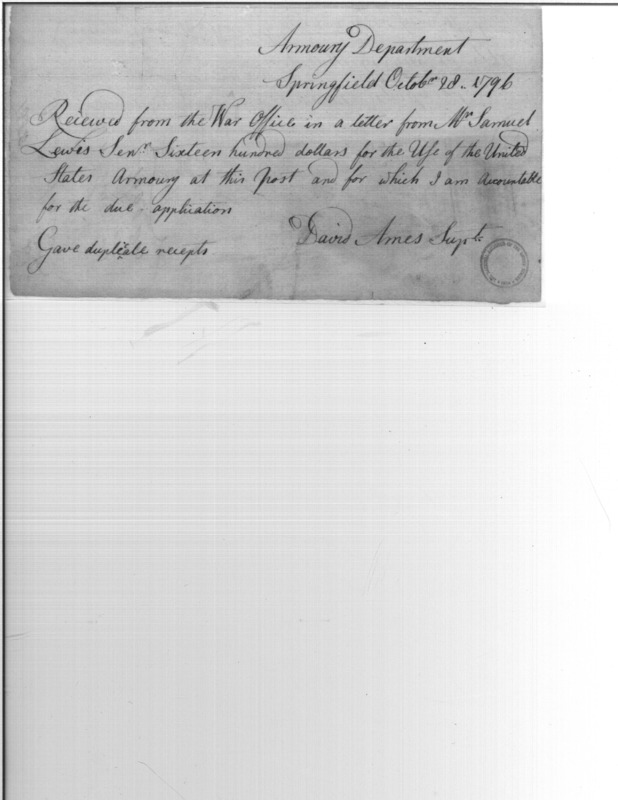 Armoury Department
Springfield Octobr 28. 1796
Reciewed from the War Office in a letter from Mr Samuel
Lewis Senr Sixteen hundred dollars for the Use of the United
States Armoury at this Post and for which I am accountable
for the due application
David Ames Supt.
Gave duplicate reciepts